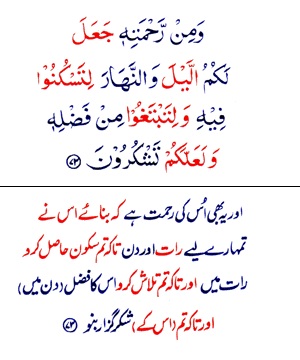 وَمِنْ رَّحْمَتِهٖ جَعَلَ
لَكُمُ الَّيْلَ وَالنَّهَارَ لِتَسْكُنُوْا
فِيْهِ وَ لِتَبْتَغُوْا مِنْ فَضْلِهٖ
وَ لَعَلَّكُمْ تَشْكُرُوْنَ ﴿۷۳﴾
اور یہ بھی اُس کی رحمت ہے کہ بنائے اس نے
تمہارے لیے رات اور دن تاکہ تم سکون حاصل کرو
رات میں اور تاکہ تم تلاش کرو اس کا فضل (دن میں)
اور تاکہ تم (اس کے) شکر گزار بنو ﴿۷۳﴾